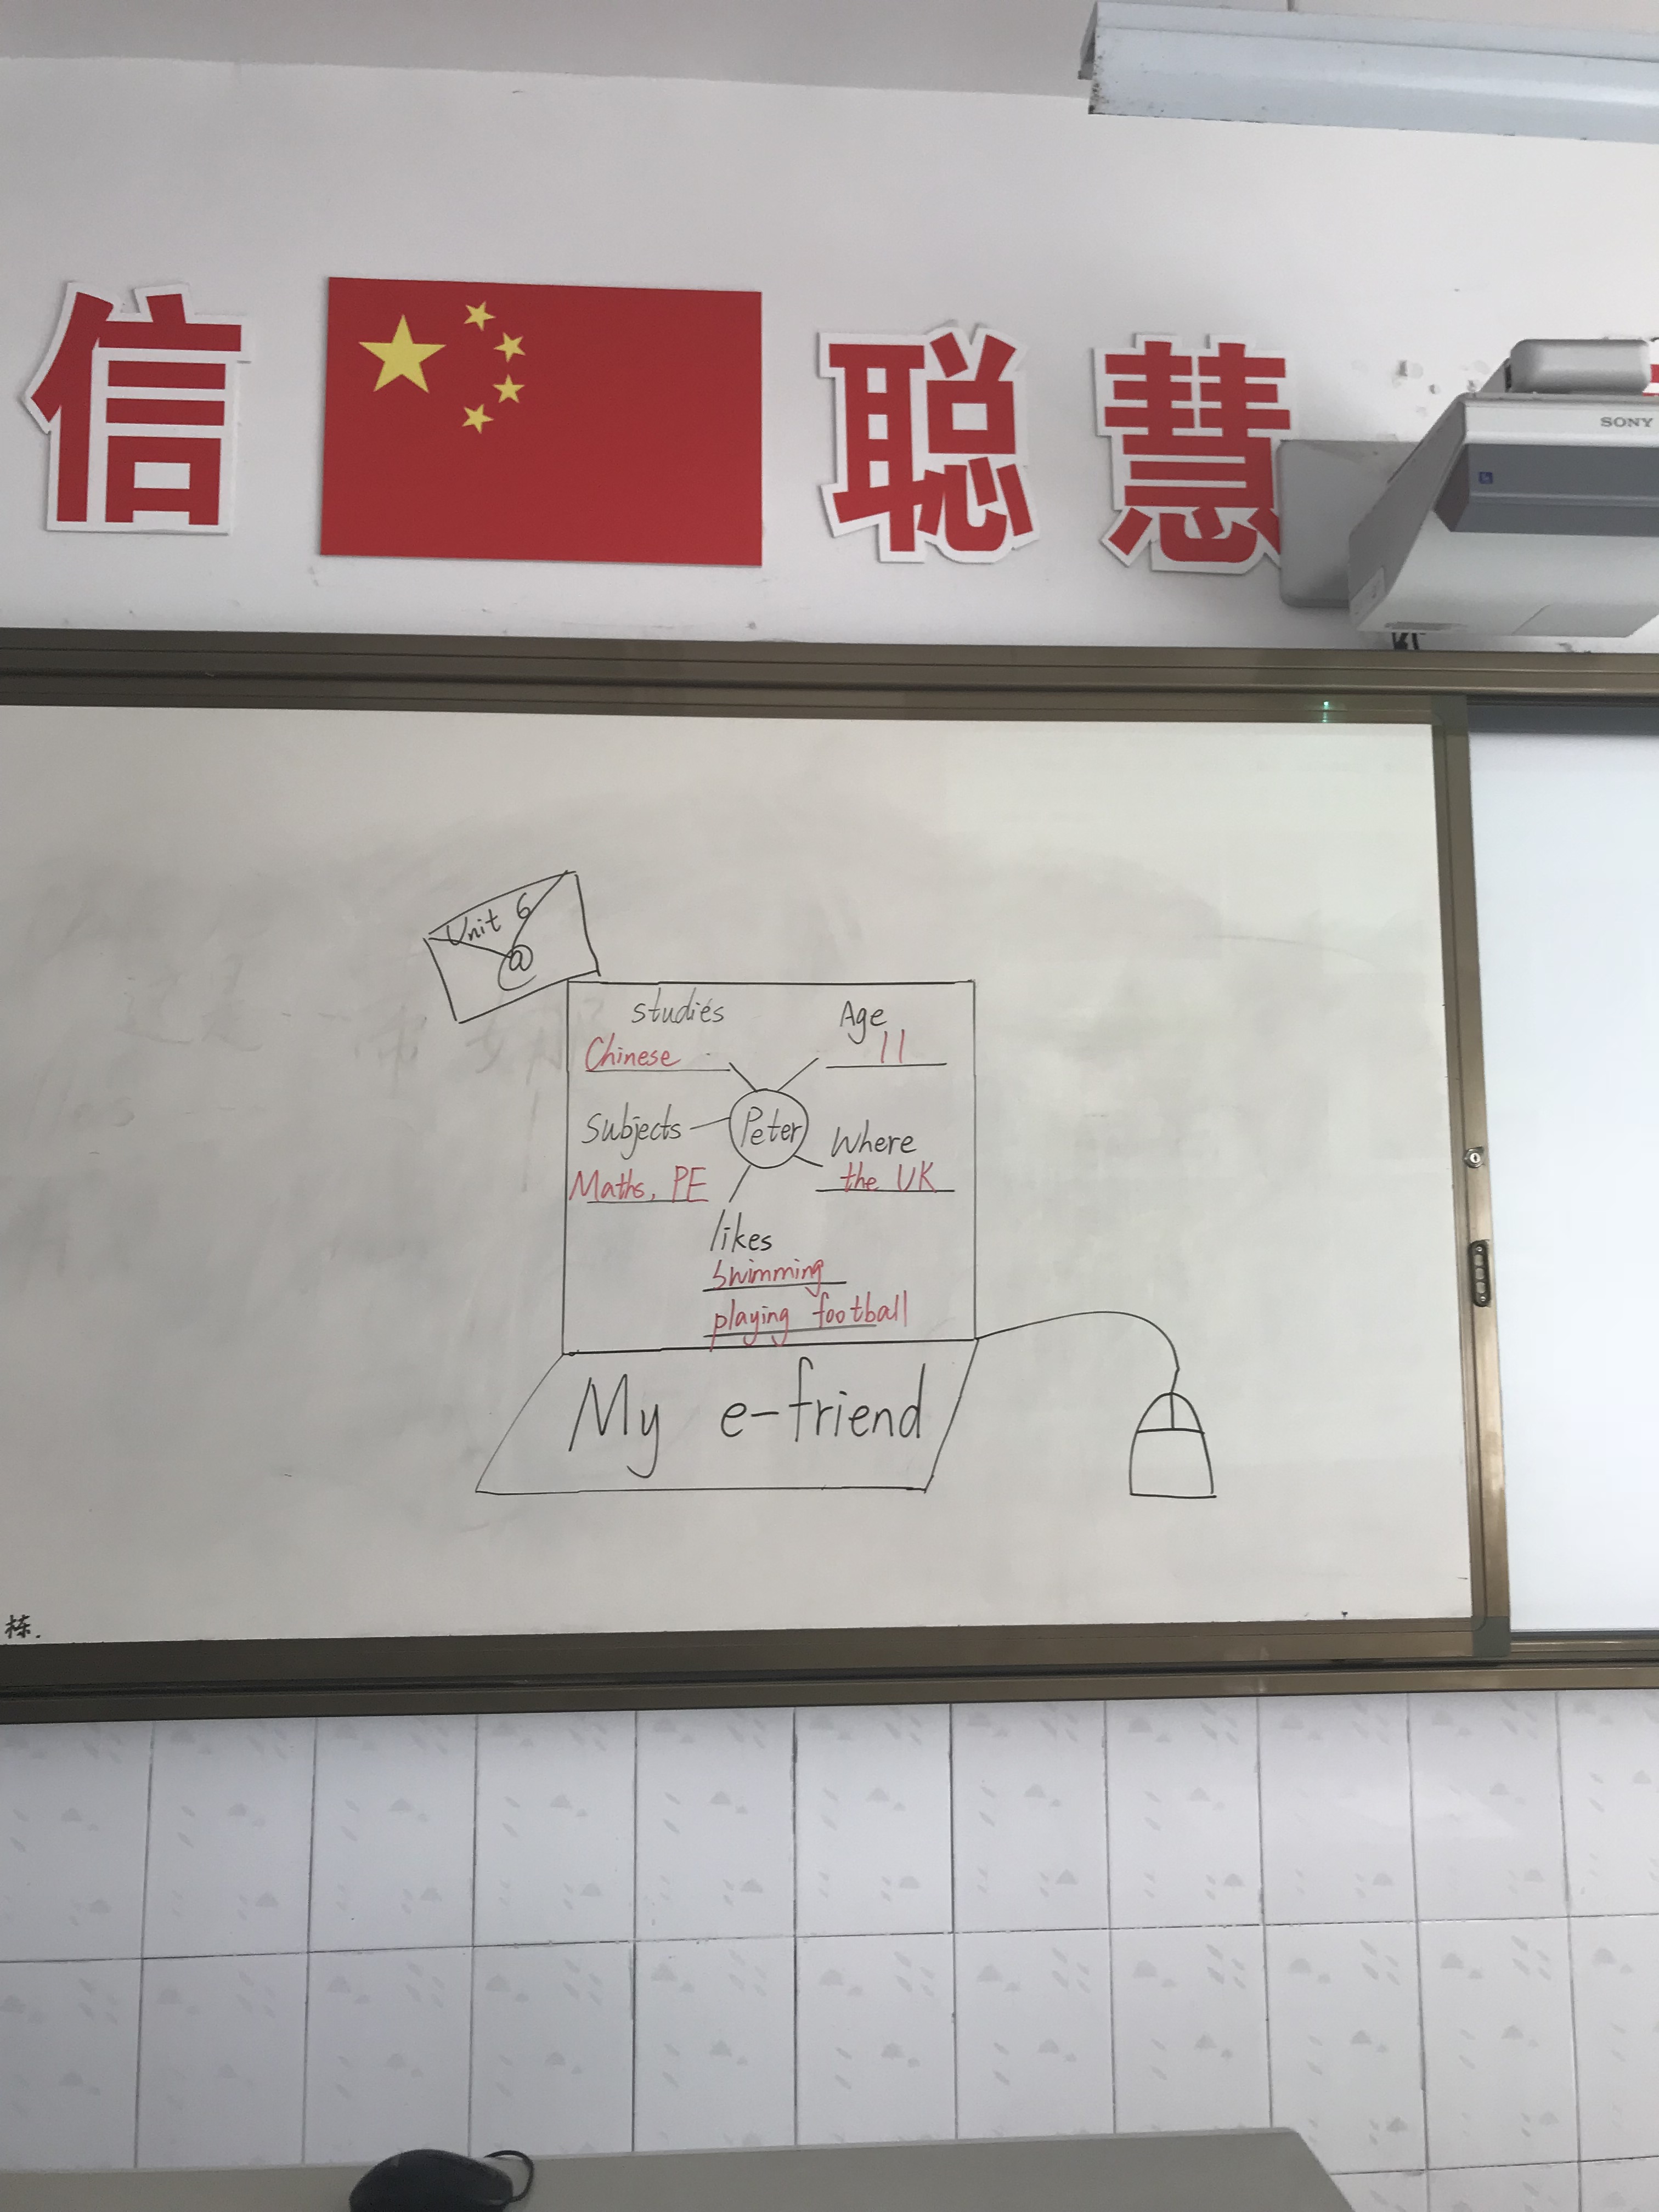 信 聪 慧
SONY
Unit 6
@
studies
Chinese
Age
11
Subjects
Maths, PE
Peter
Where
the UK
likes
swimming
playing football
My e-friend
栋.